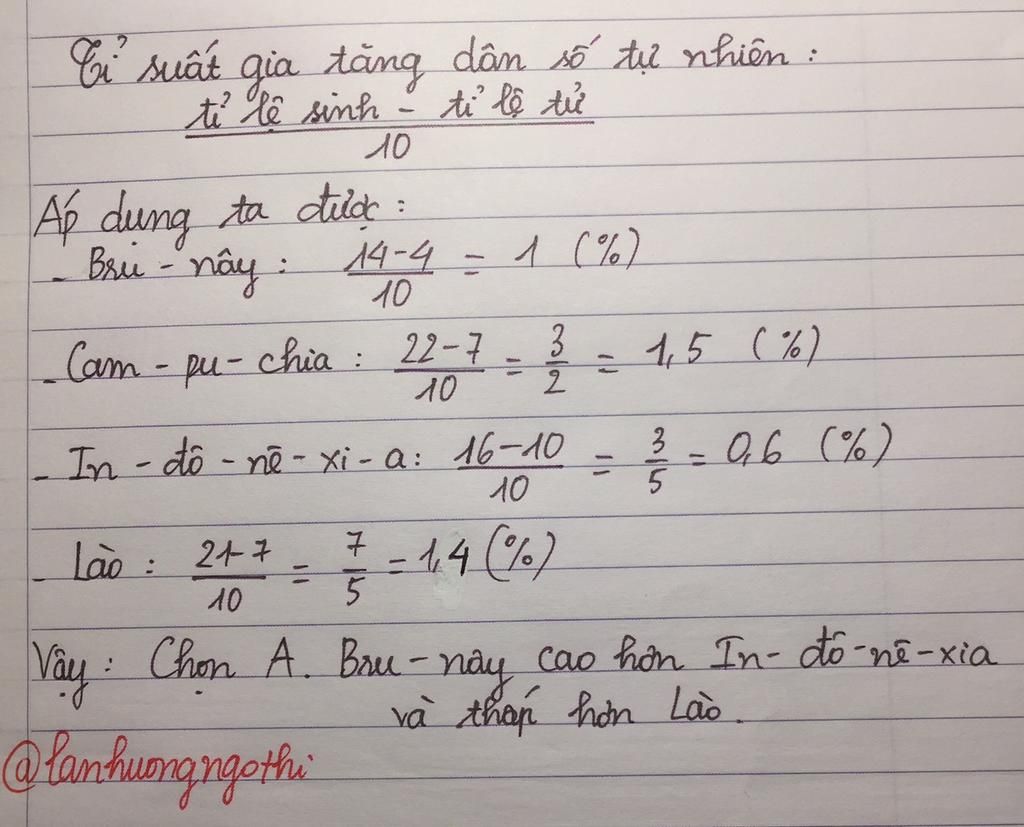 Tỉ suất gia tăng dân số tự nhiên :
tỉ lệ sinh - tỉ lệ tử
10
Áp dụng ta được :
- Bru - nây : 14-4 / 10 = 1 (%)
- Cam - pu - chia : 22-7 / 10 = 3/2 = 1,5 (%)
- In - đô - nê - xi - a : 16-10 / 10 = 3/5 = 0,6 (%)
- Lào : 21-7 / 10 = 7/5 = 1,4 (%)
Vậy : Chọn A. Bru - nây cao hơn In - đô - nê - xia
và thấp hơn Lào.
@lanhuongngothi